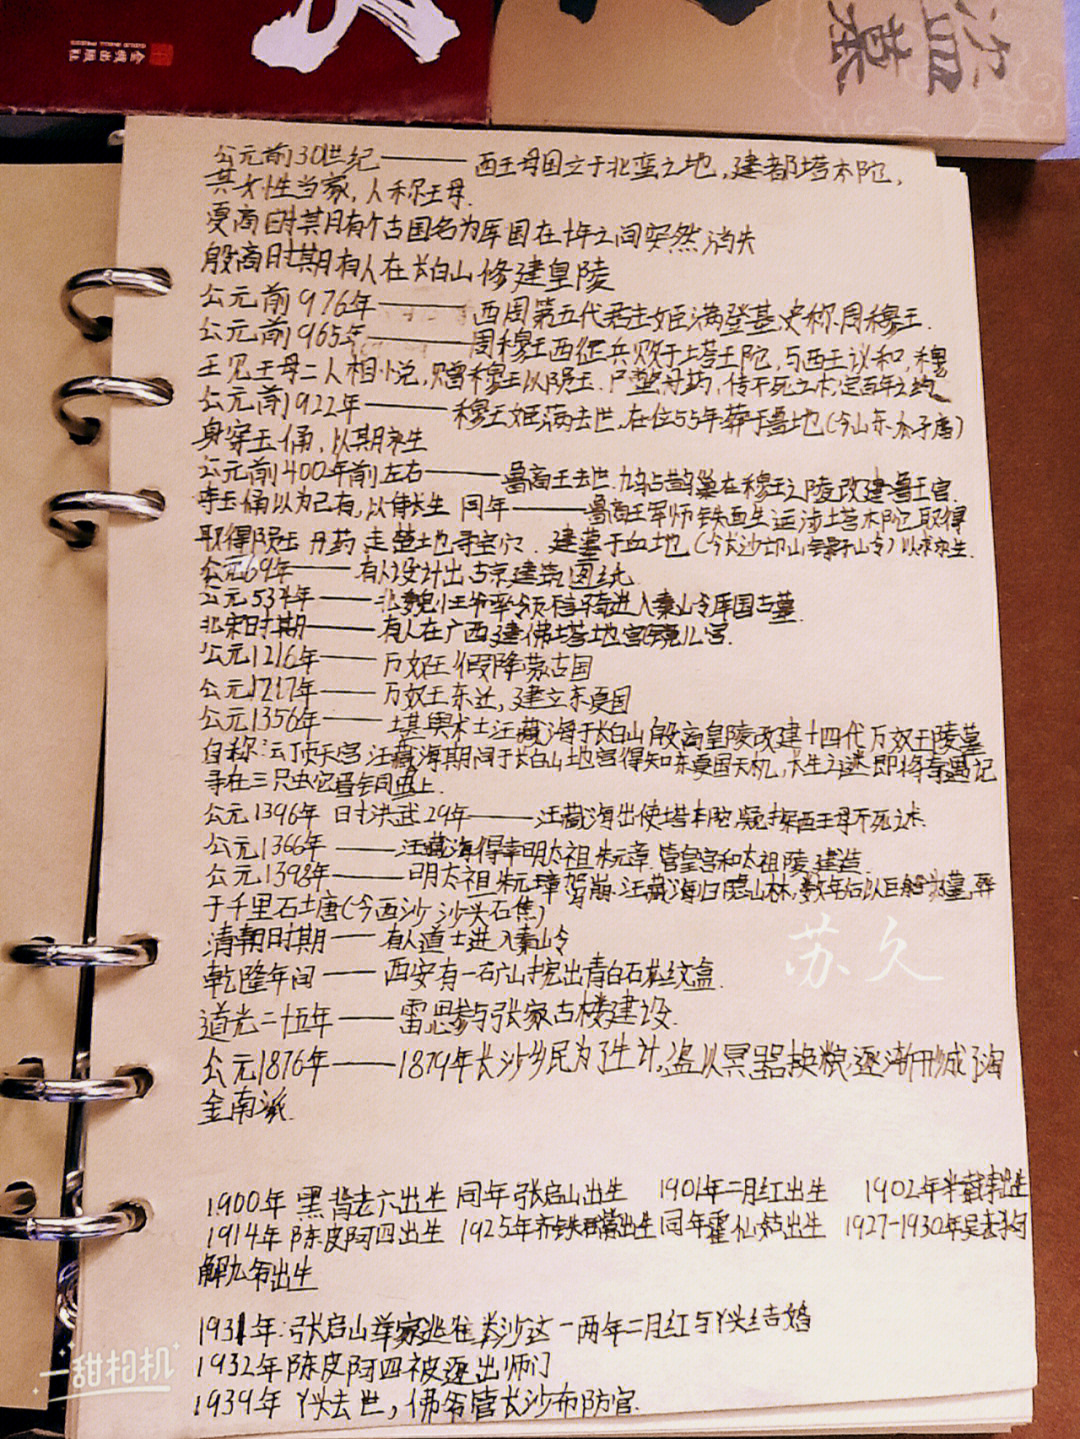 金城出版社
GOLD WALL PRESS
盗墓
公元前30世纪——西王母国立于北蛮之地,建都塔木陀,
其女性当家,人称王母.
夏商时期有个古国名为厍国在十年之间突然消失
殷商时期有人在长白山修建皇陵
公元前976年——西周第五代君主姬满登基,史称周穆王.
公元前965年——周穆王西征兵败于塔王陀,与西王议和,穆
王见王母二人相悦,赠穆王以陨玉.尸蟞丹药,传不死之术,定百年之约
公元前922年——穆王姬满去世,在位55年葬于鲁地(今山东·瓜子庙)
身穿玉俑,以期永生
公元前400年前左右——鲁商王去世.鸠占鹊巢在穆王之陵改建鲁王宫.
夺玉俑以为己有,以待长生 同年——鲁商王军师铁面生远涉塔木陀取得
取得陨玉丹药,走楚地寻宝穴.建墓于血地(今长沙 山)以求永生.
公元69年——有人设计出古京建筑图纸
公元534年——北魏小王爷率领 骑进入秦山令厍国古墓
北宋时期——有人在广西建佛塔地宫镜儿宫.
公元1216年——万奴王假降蒙古国
公元1217年——万奴王东迁,建立东夏国
公元1356年——堪舆术士汪藏海于长白山殷商皇陵改建十四代万奴王陵墓
自称:云顶天宫,汪藏海期间于长白山地宫得知东夏国天机,长生之迷即将奇遇记
寻在三只蛇眉铜鱼上.
公元1396年 时洪武29年——汪藏海出使塔木陀,疑探西王母不死之术.
公元1366年——汪藏海得幸明太祖朱元章.管皇宫和太祖陵建造.
公元1398年——明太祖朱元璋驾崩.汪藏海归隐山林,数年后以巨船为墓,葬
于千里石土唐(今西沙沙头石焦)
清朝时期——有人道士进入秦山令
乾隆年间——西安有一石广山挖出青白石龙纹盒.
道光二十五年——雷思参与张家古楼建设.
公元1876年——1879年长沙乡民为了生计,盗以冥器换粮,逐渐形成了淘
金南派.
苏久
1900年 黑背老六出生 同年张启山出生 1901年二月红出生 1902年半截李出生
1914年 陈皮阿四出生 1925年齐铁嘴出生同年霍仙姑出生 1927-1930年吴老狗
解九爷出生
1931年:张启山举家逃往长沙这一两年二月红与丫头结婚
1932年陈皮阿四被逐出师门
1939年 丫头去世,佛爷管长沙布防官.
一甜相机